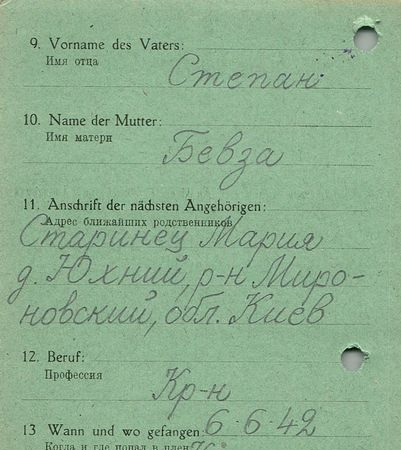 9. Vorname des Vaters:
Имя отца
Степан
10. Name der Mutter:
Имя матери
Бевза
11. Anschrift der nächsten Angehörigen:
Адрес ближайших родственников
Старинец Мария
д. Юхний, р-н Миро-
новский, обл. Киев
12. Beruf:
Профессия
Кр-н
13 Wann und wo gefangen: 6.6.42
Когда и где попал в плен